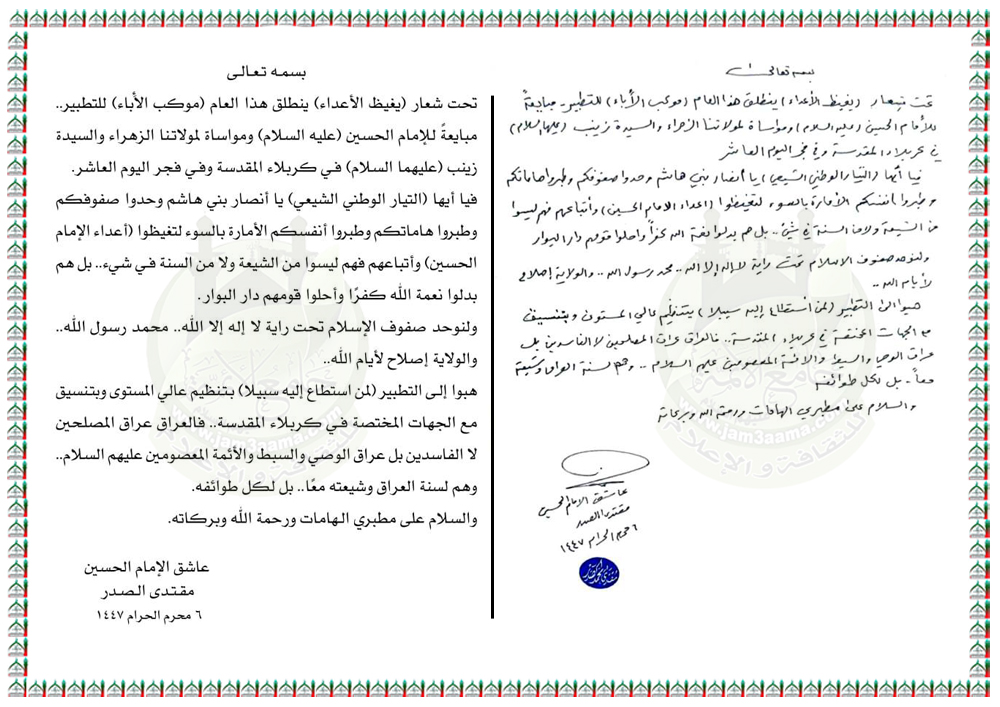 بسمه تعالى
تحت شعار (يغيظ الأعداء) ينطلق هذا العام (موكب الأباء) للتطبير- مبايعةً
للأمام الحسين (عليه السلام) ومواساة لمولاتنا الزهراء والسيدة زينب (عليهما السلام)
في كربلاء المقدسة وفي فجر اليوم العاشر
فيا أيها (التيار الوطني الشيعي) يا أنصار بني هاشم وحدوا صفوفكم وطبروا هاماتكم
وطبروا أنفسكم الأمارة بالسوء لتغيظوا (اعداء الامام الحسين) وأتباعهم فهم ليسوا
من الشيعة ولا من السنة في شيء .. بل هم بدلوا نعمة الله كفراً واحلوا قومهم دار البوار
ولنوحد صفوف الاسلام تحت راية لا إله إلا الله .. محمد رسول الله .. والولاية إصلاح
لأيام الله ..
هبوا الى التطبير (لمن استطاع إليه سبيلا) بتنظيم عالي المستوى وبتنسيق
مع الجهات المختصة في كربلاء المقدسة .. فالعراق عراق المصلحين لا الفاسدين بل
عراق الوصي والسبط والائمة المعصومين عليهم السلام .. وهم لسنة العراق وشيعته
معاً - بل لكل طوائفه
والسلام على مطبري الهامات ورحمة الله وبركاته
عاشق الامام الحسين
مقتدى الصدر
٦ محرم الحرام ١٤٤٧
بسمه تعالى
تحت شعار (يغيظ الأعداء) ينطلق هذا العام (موكب الأباء) للتطبير..
مبايعةً للإمام الحسين (عليه السلام) ومواساة لمولاتنا الزهراء والسيدة
زينب (عليهما السلام) في كربلاء المقدسة وفي فجر اليوم العاشر.
فيا أيها (التيار الوطني الشيعي) يا أنصار بني هاشم وحدوا صفوفكم
وطبروا هاماتكم وطبروا أنفسكم الأمارة بالسوء لتغيظوا (أعداء الإمام
الحسين) وأتباعهم فهم ليسوا من الشيعة ولا من السنة في شيء.. بل هم
بدلوا نعمة الله كفرًا وأحلوا قومهم دار البوار.
ولنوحد صفوف الإسلام تحت راية لا إله إلا الله.. محمد رسول الله..
والولاية إصلاح لأيام الله..
هبوا إلى التطبير (لمن استطاع إليه سبيلا) بتنظيم عالي المستوى وبتنسيق
مع الجهات المختصة في كربلاء المقدسة.. فالعراق عراق المصلحين
لا الفاسدين بل عراق الوصي والسبط والأئمة المعصومين عليهم السلام..
وهم لسنة العراق وشيعته معًا.. بل لكل طوائفه.
والسلام على مطبري الهامات ورحمة الله وبركاته.
عاشق الإمام الحسين
مقتدى الصدر
٦ محرم الحرام ١٤٤٧
www.jam3aama.com
للثقافة والإعلام